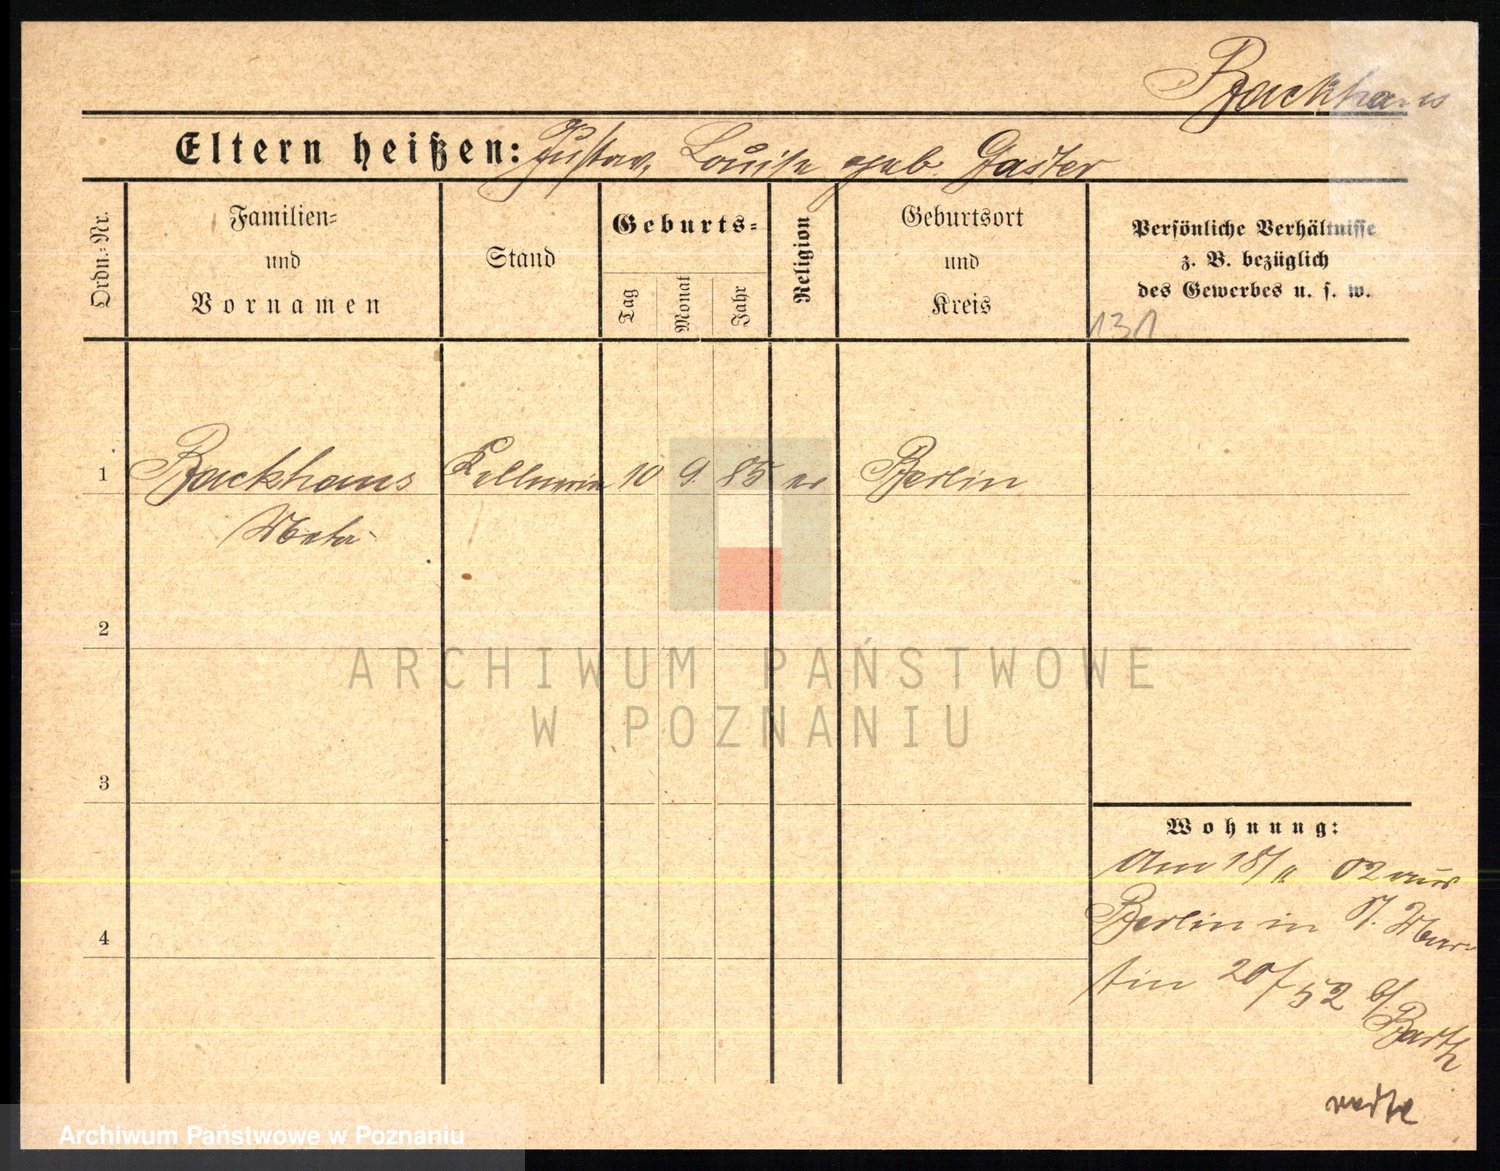 Backhaus
Eltern heißen: Gustav, Louise geb. Gaster
Ordn.=Nr.
Familien=
und
Vornamen
Stand
Geburts=
Tag
Monat
Jahr
Religion
Geburtsort
und
Kreis
Persönliche Verhältnisse
z. B. bezüglich
des Gewerbes u. s. w.
131
1 Backhaus Kellnerin 10 9. 85 ev Berlin
Meta
2
3
4
Wohnung:
Am 18/11 02 aus
Berlin in St. Mar-
tin 20/52 b/
Barth
ARCHIWUM PAŃSTWOWE
W POZNANIU
Archiwum Państwowe w Poznaniu